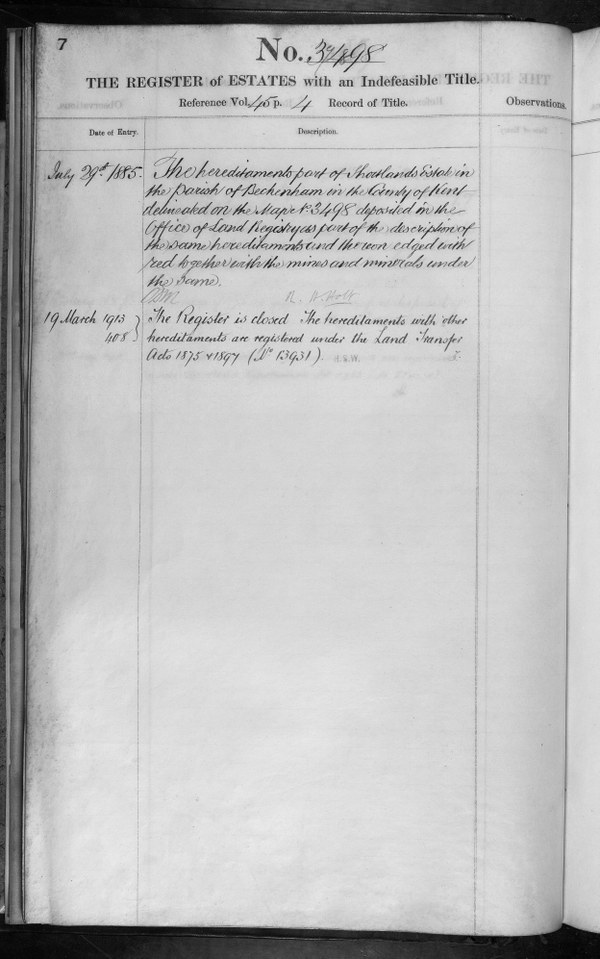 7
No. 3498
THE REGISTER of ESTATES with an Indefeasible Title.
Reference Vol. 45 p. 4 Record of Title.
Observations.
Date of Entry.
Description.
July 29th 1885. The hereditaments part of Shortlands Estate in
the Parish of Beckenham in the County of Kent
delineated on the Map No. 3498 deposited in the
Office of Land Registry as part of the description of
the same hereditaments and thereon edged with
red together with the mines and minerals under
the same.
R. H. Holt
19 March 1913 The Register is closed The hereditaments with other
408 } hereditaments are registered under the Land Transfer
Acts 1875 & 1897 (No 13931).